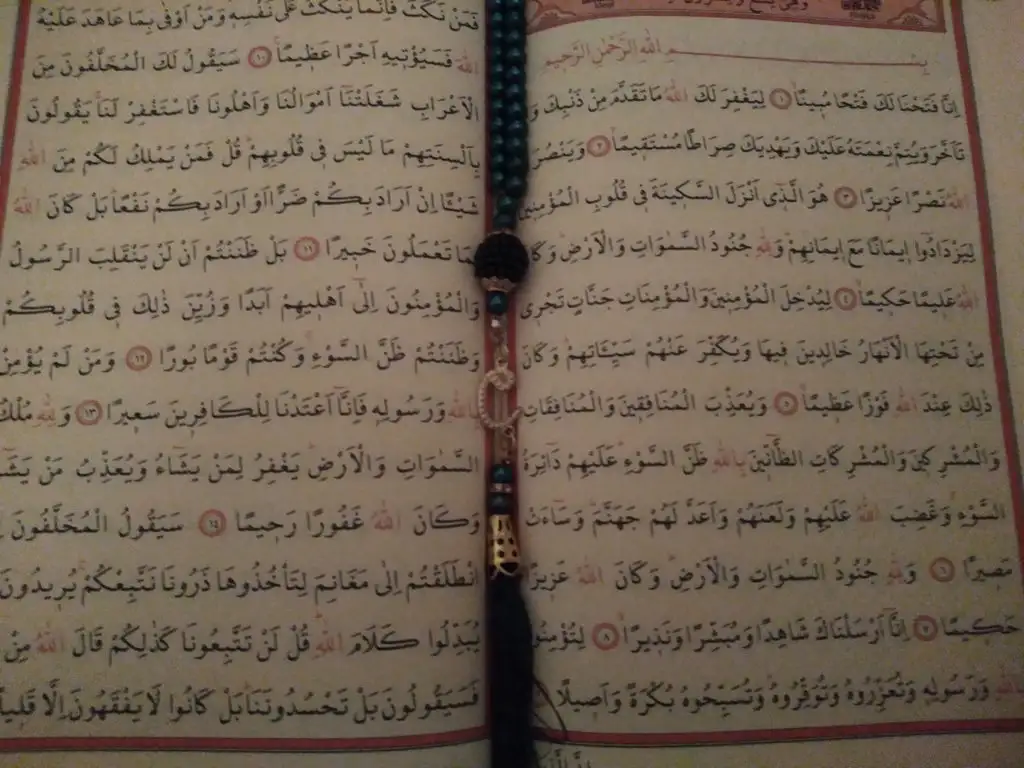 بِسْمِ اللهِ الرَّحْمٰنِ الرَّحِيمِ
اِنَّا فَتَحْنَا لَكَ فَتْحًا مُبِينًا ١ لِيَغْفِرَ لَكَ اللهُ مَا تَقَدَّمَ مِنْ ذَنْبِكَ وَ
تَاَخَّرَ وَيُتِمَّ نِعْمَتَهُ عَلَيْكَ وَيَهْدِيَكَ صِرَاطًا مُسْتَقِيمًا ٢ وَيَنْصُرَ
اللهُ نَصْرًا عَزِيزًا ٣ هُوَ الَّذِى اَنْزَلَ السَّكِينَةَ فِى قُلُوبِ الْمُؤْمِنِينَ
لِيَزْدَادُوا اِيمَانًا مَعَ اِيمَانِهِمْ وَلِلّٰهِ جُنُودُ السَّمٰوَاتِ وَالْاَرْضِ وَكَا
اللهُ عَلِيمًا حَكِيمًا ٤ لِيُدْخِلَ الْمُؤْمِنِينَ وَالْمُؤْمِنَاتِ جَنَّاتٍ تَجْرِى
مِنْ تَحْتِهَا الْاَنْهَارُ خَالِدِينَ فِيهَا وَيُكَفِّرَ عَنْهُمْ سَيِّئَاتِهِمْ وَكَانَ
ذٰلِكَ عِنْدَ اللهِ فَوْزًا عَظِيمًا ٥ وَيُعَذِّبَ الْمُنَافِقِينَ وَالْمُنَافِقَاتِ
وَالْمُشْرِكِينَ وَالْمُشْرِكَاتِ الظَّٓانِّينَ بِاللهِ ظَنَّ السَّوْءِ عَلَيْهِمْ دَٓائِرَةُ
السَّوْءِ وَغَضِبَ اللهُ عَلَيْهِمْ وَلَعَنَهُمْ وَاَعَدَّ لَهُمْ جَهَنَّمَ وَسَٓاءَتْ
مَصِيرًا ٦ وَلِلّٰهِ جُنُودُ السَّمٰوَاتِ وَالْاَرْضِ وَكَانَ اللهُ عَزِيزًا
حَكِيمًا ٧ اِنَّٓا اَرْسَلْنَاكَ شَاهِدًا وَمُبَشِّرًا وَنَذِيرًا ٨ لِتُؤْمِنُوا
بِاللهِ وَرَسُولِهِ وَتُعَزِّرُوهُ وَتُوَقِّرُوهُ وَتُسَبِّحُوهُ بُكْرَةً وَاَصِيلًا
فَمَنْ نَكَثَ فَاِنَّمَا يَنْكُثُ عَلٰى نَفْسِهِ وَمَنْ اَوْفٰى بِمَا عَاهَدَ عَلَيْهُ
اللهَ فَسَيُؤْتِيهِ اَجْرًا عَظِيمًا ١٠ سَيَقُولُ لَكَ الْمُخَلَّفُونَ مِنَ
الْاَعْرَابِ شَغَلَتْنَٓا اَمْوَالُنَا وَاَهْلُونَا فَاسْتَغْفِرْ لَنَا يَقُولُونَ
بِاَلْسِنَتِهِمْ مَا لَيْسَ فِى قُلُوبِهِمْ قُلْ فَمَنْ يَمْلِكُ لَكُمْ مِنَ اللهِ
شَيْئًا اِنْ اَرَادَ بِكُمْ ضَرًّا اَوْ اَرَادَ بِكُمْ نَفْعًا بَلْ كَانَ اللهُ
بِمَا تَعْمَلُونَ خَبِيرًا ١١ بَلْ ظَنَنْتُمْ اَنْ لَنْ يَنْقَلِبَ الرَّسُولُ
وَالْمُؤْمِنُونَ اِلٰٓى اَهْلِيهِمْ اَبَدًا وَزُيِّنَ ذٰلِكَ فِى قُلُوبِكُمْ
وَظَنَنْتُمْ ظَنَّ السَّوْءِ وَكُنْتُمْ قَوْمًا بُورًا ١٢ وَمَنْ لَمْ يُؤْمِنْ
بِاللهِ وَرَسُولِهِ فَاِنَّٓا اَعْتَدْنَا لِلْكَافِرِينَ سَعِيرًا ١٣ وَلِلّٰهِ مُلْكُ
السَّمٰوَاتِ وَالْاَرْضِ يَغْفِرُ لِمَنْ يَشَٓاءُ وَيُعَذِّبُ مَنْ يَشَٓا
وَكَانَ اللهُ غَفُورًا رَحِيمًا ١٤ سَيَقُولُ الْمُخَلَّفُونَ
انْطَلَقْتُمْ اِلٰى مَغَانِمَ لِتَأْخُذُوهَا ذَرُونَا نَتَّبِعْكُمْ يُرِيدُونَ
يُبَدِّلُوا كَلَامَ اللهِ قُلْ لَنْ تَتَّبِعُونَا كَذٰلِكُمْ قَالَ اللهُ مِنْ
فَسَيَقُولُونَ بَلْ تَحْسُدُونَنَا بَلْ كَانُوا لَا يَفْقَهُونَ اِلَّا قَلِيلًا